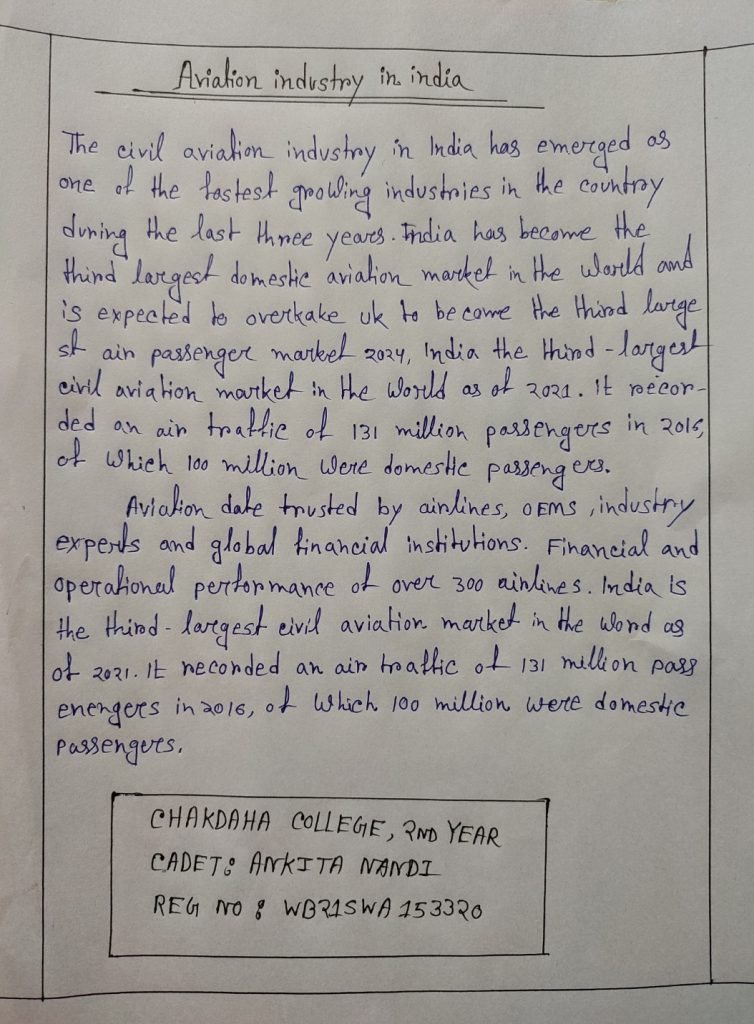 Aviation industry in india
The civil aviation industry in India has emerged as
one of the fastest growing industries in the country
during the last three years. India has become the
third largest domestic aviation market in the World and
is expected to overkake uk to become the third large
st air passenger market 2024, India the third - largest
civil aviation market in the World as of 2021. It recor-
ded an air traffic of 131 million passengers in 2016,
of Which 100 million Were domestic passengers.
Aviation date trusted by airlines, OEMS, industry
experts and global financial institutions. Financial and
operational performance of over 300 airlines. India is
the third - largest civil aviation market in the Word as
of 2021. It recorded an air traffic of 131 million pass
enengers in 2016, of Which 100 million were domestic
passengers.
CHAKDAHA COLLEGE, 2ND YEAR
CADET: ANKITA NANDI
REG NO: WB21SWA153320